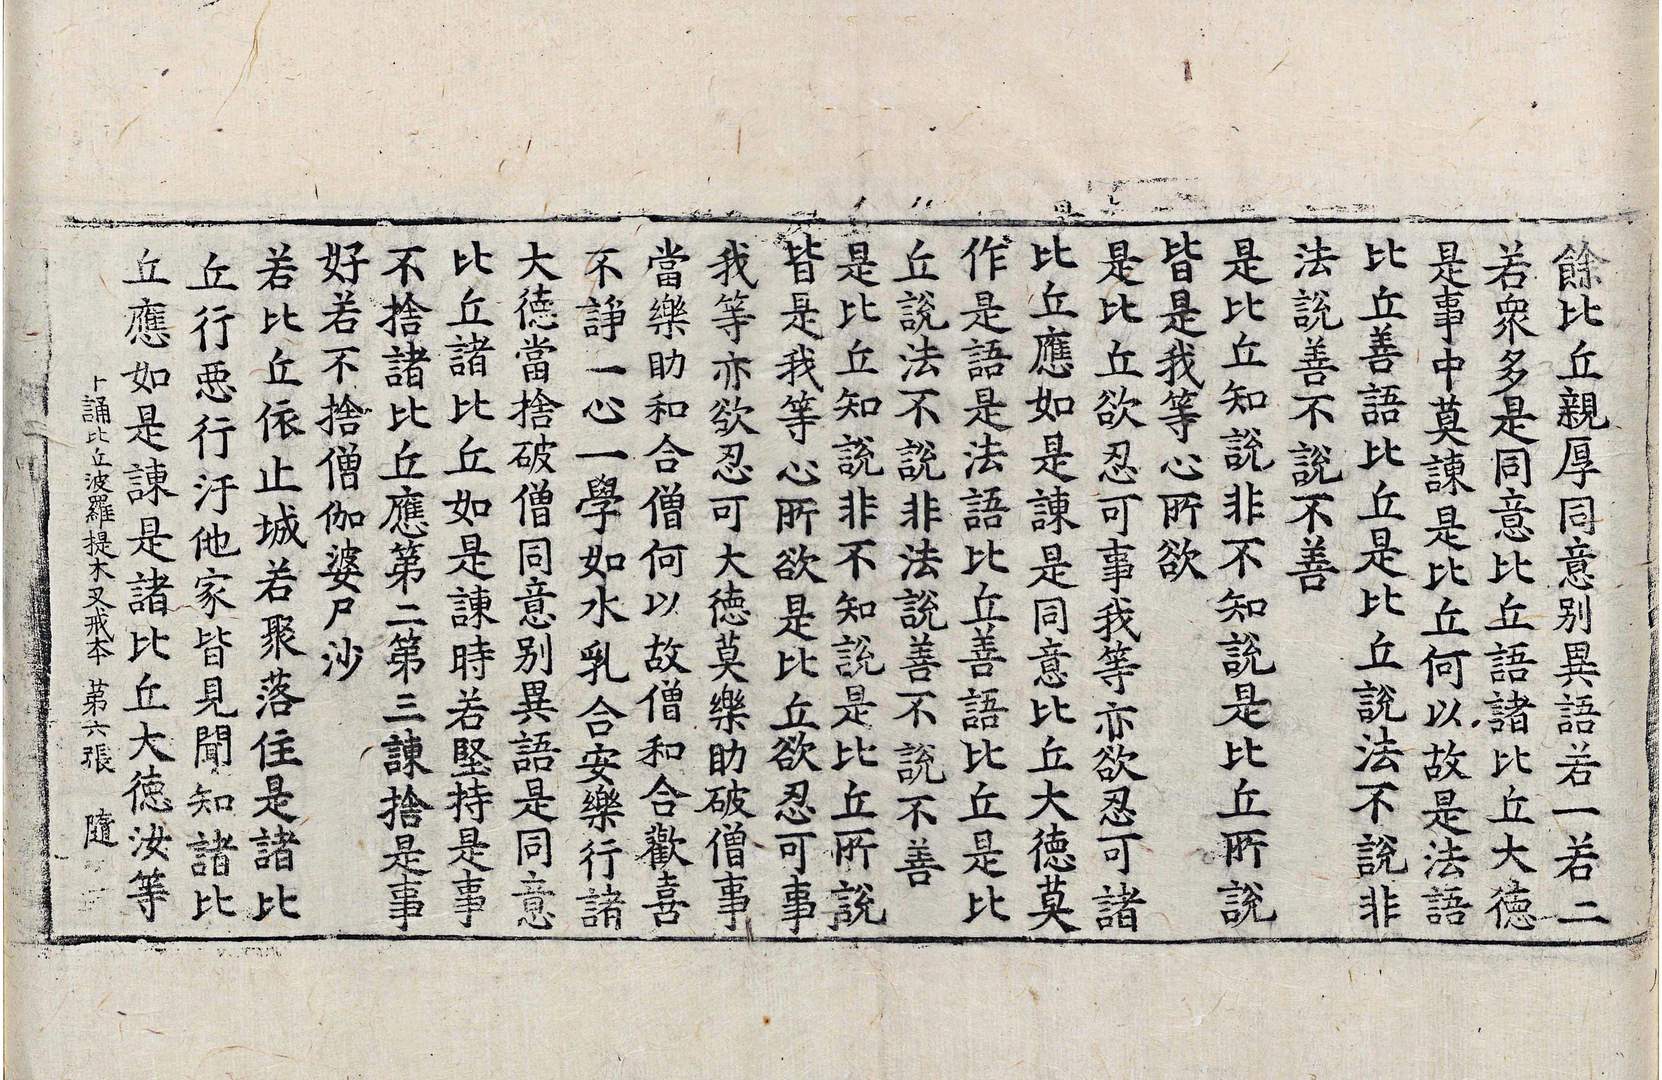 餘比丘親厚同意別異語若一若二
若衆多是同意比丘語諸比丘大德
是事中莫諫是比丘何以故是法語
比丘善語比丘是比丘說法不說非
法說善不說不善
是比丘知說非不知說是比丘所說
皆是我等心所欲
是比丘欲忍可事我等亦欲忍可諸
比丘應如是諫是同意比丘大德莫
作是語是法語比丘善語比丘是比
丘說法不說非法說善不說不善
是比丘知說非不知說是比丘所說
皆是我等心所欲是比丘欲忍可事
我等亦欲忍可大德莫樂助破僧事
當樂助和合僧何以故僧和合歡喜
不諍一心一學如水乳合安樂行諸
大德當捨破僧同意別異語是同意
比丘諸比丘如是諫時若堅持是事
不捨諸比丘應第二第三諫捨是事
好若不捨僧伽婆尸沙
若比丘依止城若聚落住是諸比
丘行惡行汙他家皆見聞知諸比
丘應如是諫是諸比丘大德汝等
卜誦比丘波羅提木叉戒本 第六張 隨